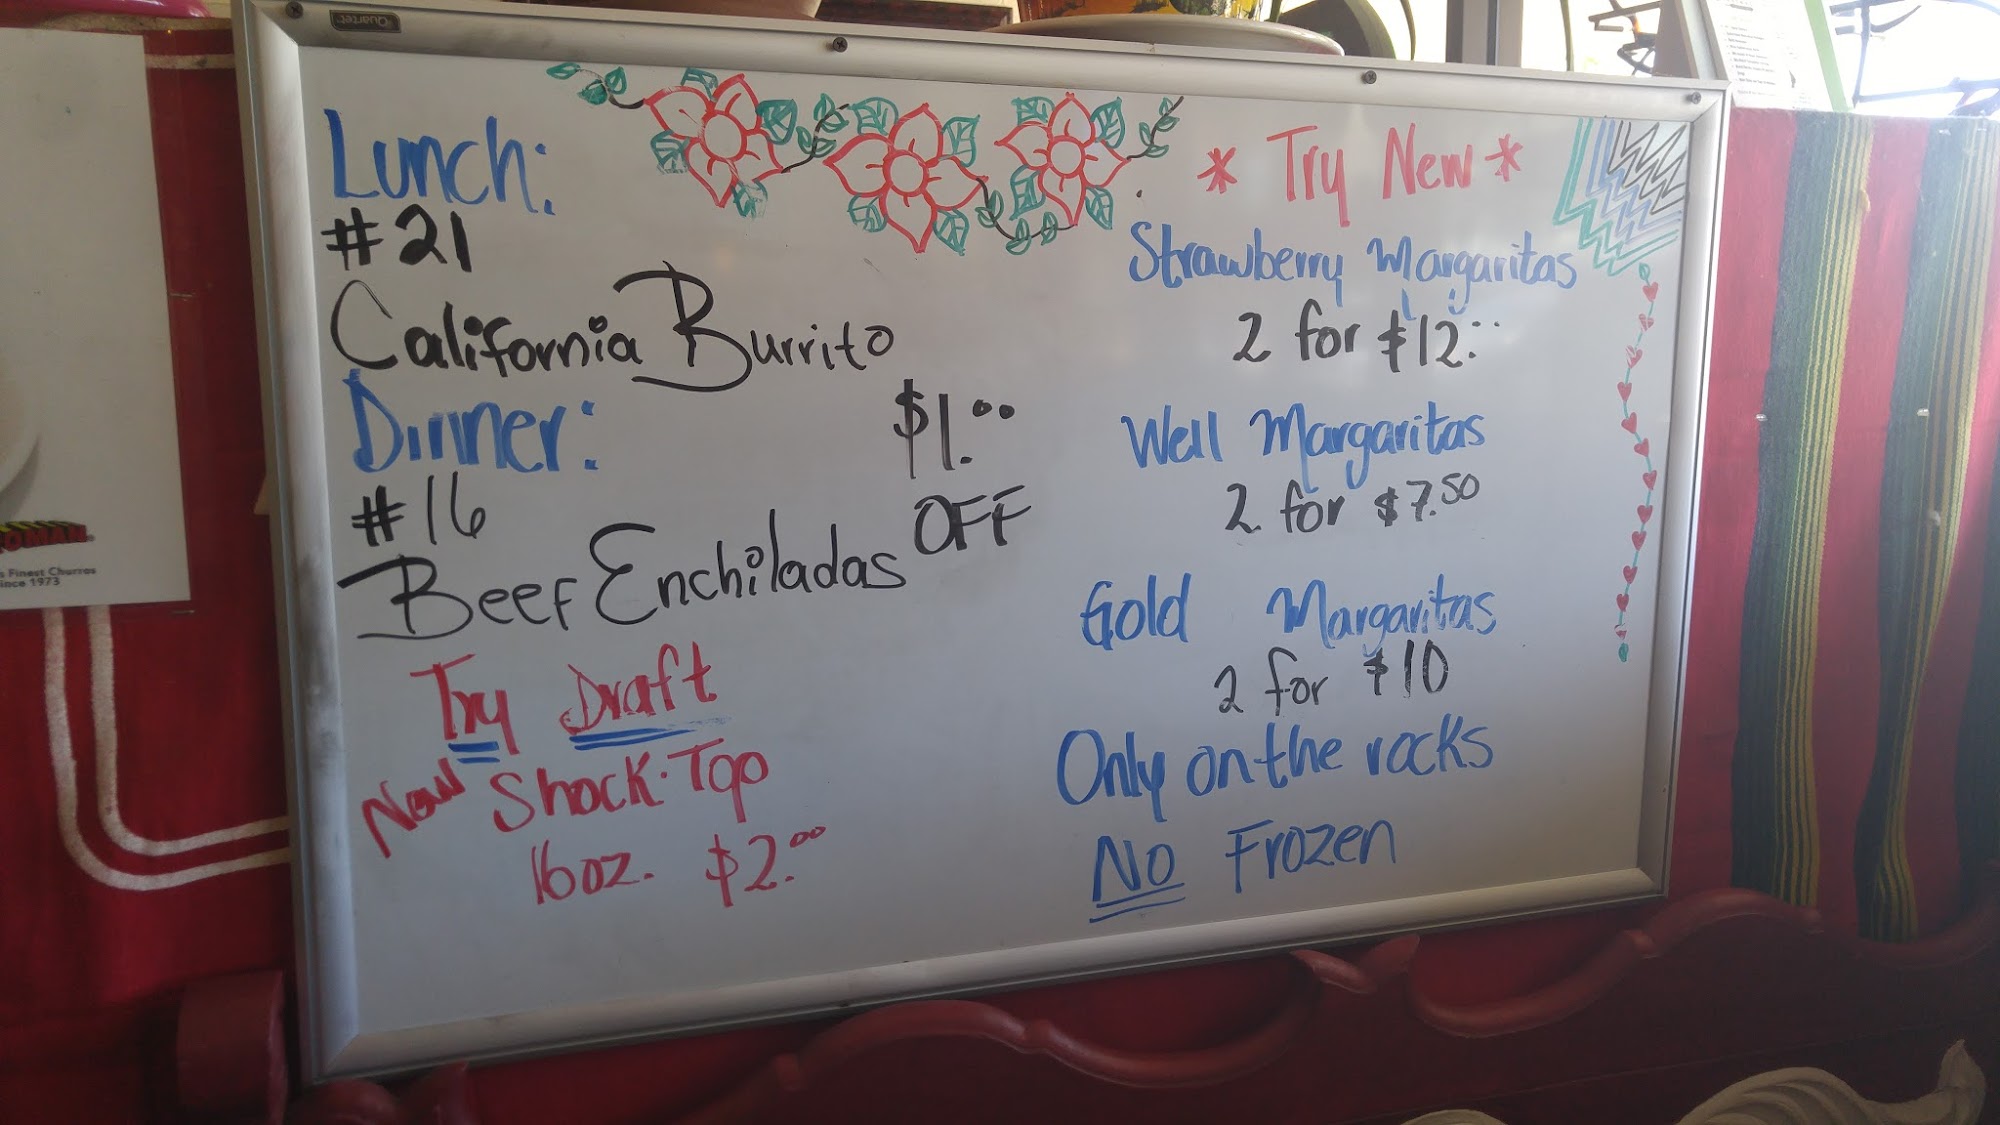 Quartet
Lunch:
#21
California Burrito
Dinner:
#16
Beef Enchiladas
$1.00
OFF
Try Draft
New Shock·Top
16oz. $2.00
* Try New *
Strawberry Margaritas
2 for $12.00
Well Margaritas
2 for $7.50
Gold Margaritas
2 for $10
Only on the rocks
No Frozen
OMAN
Finest Churros
ince 1973